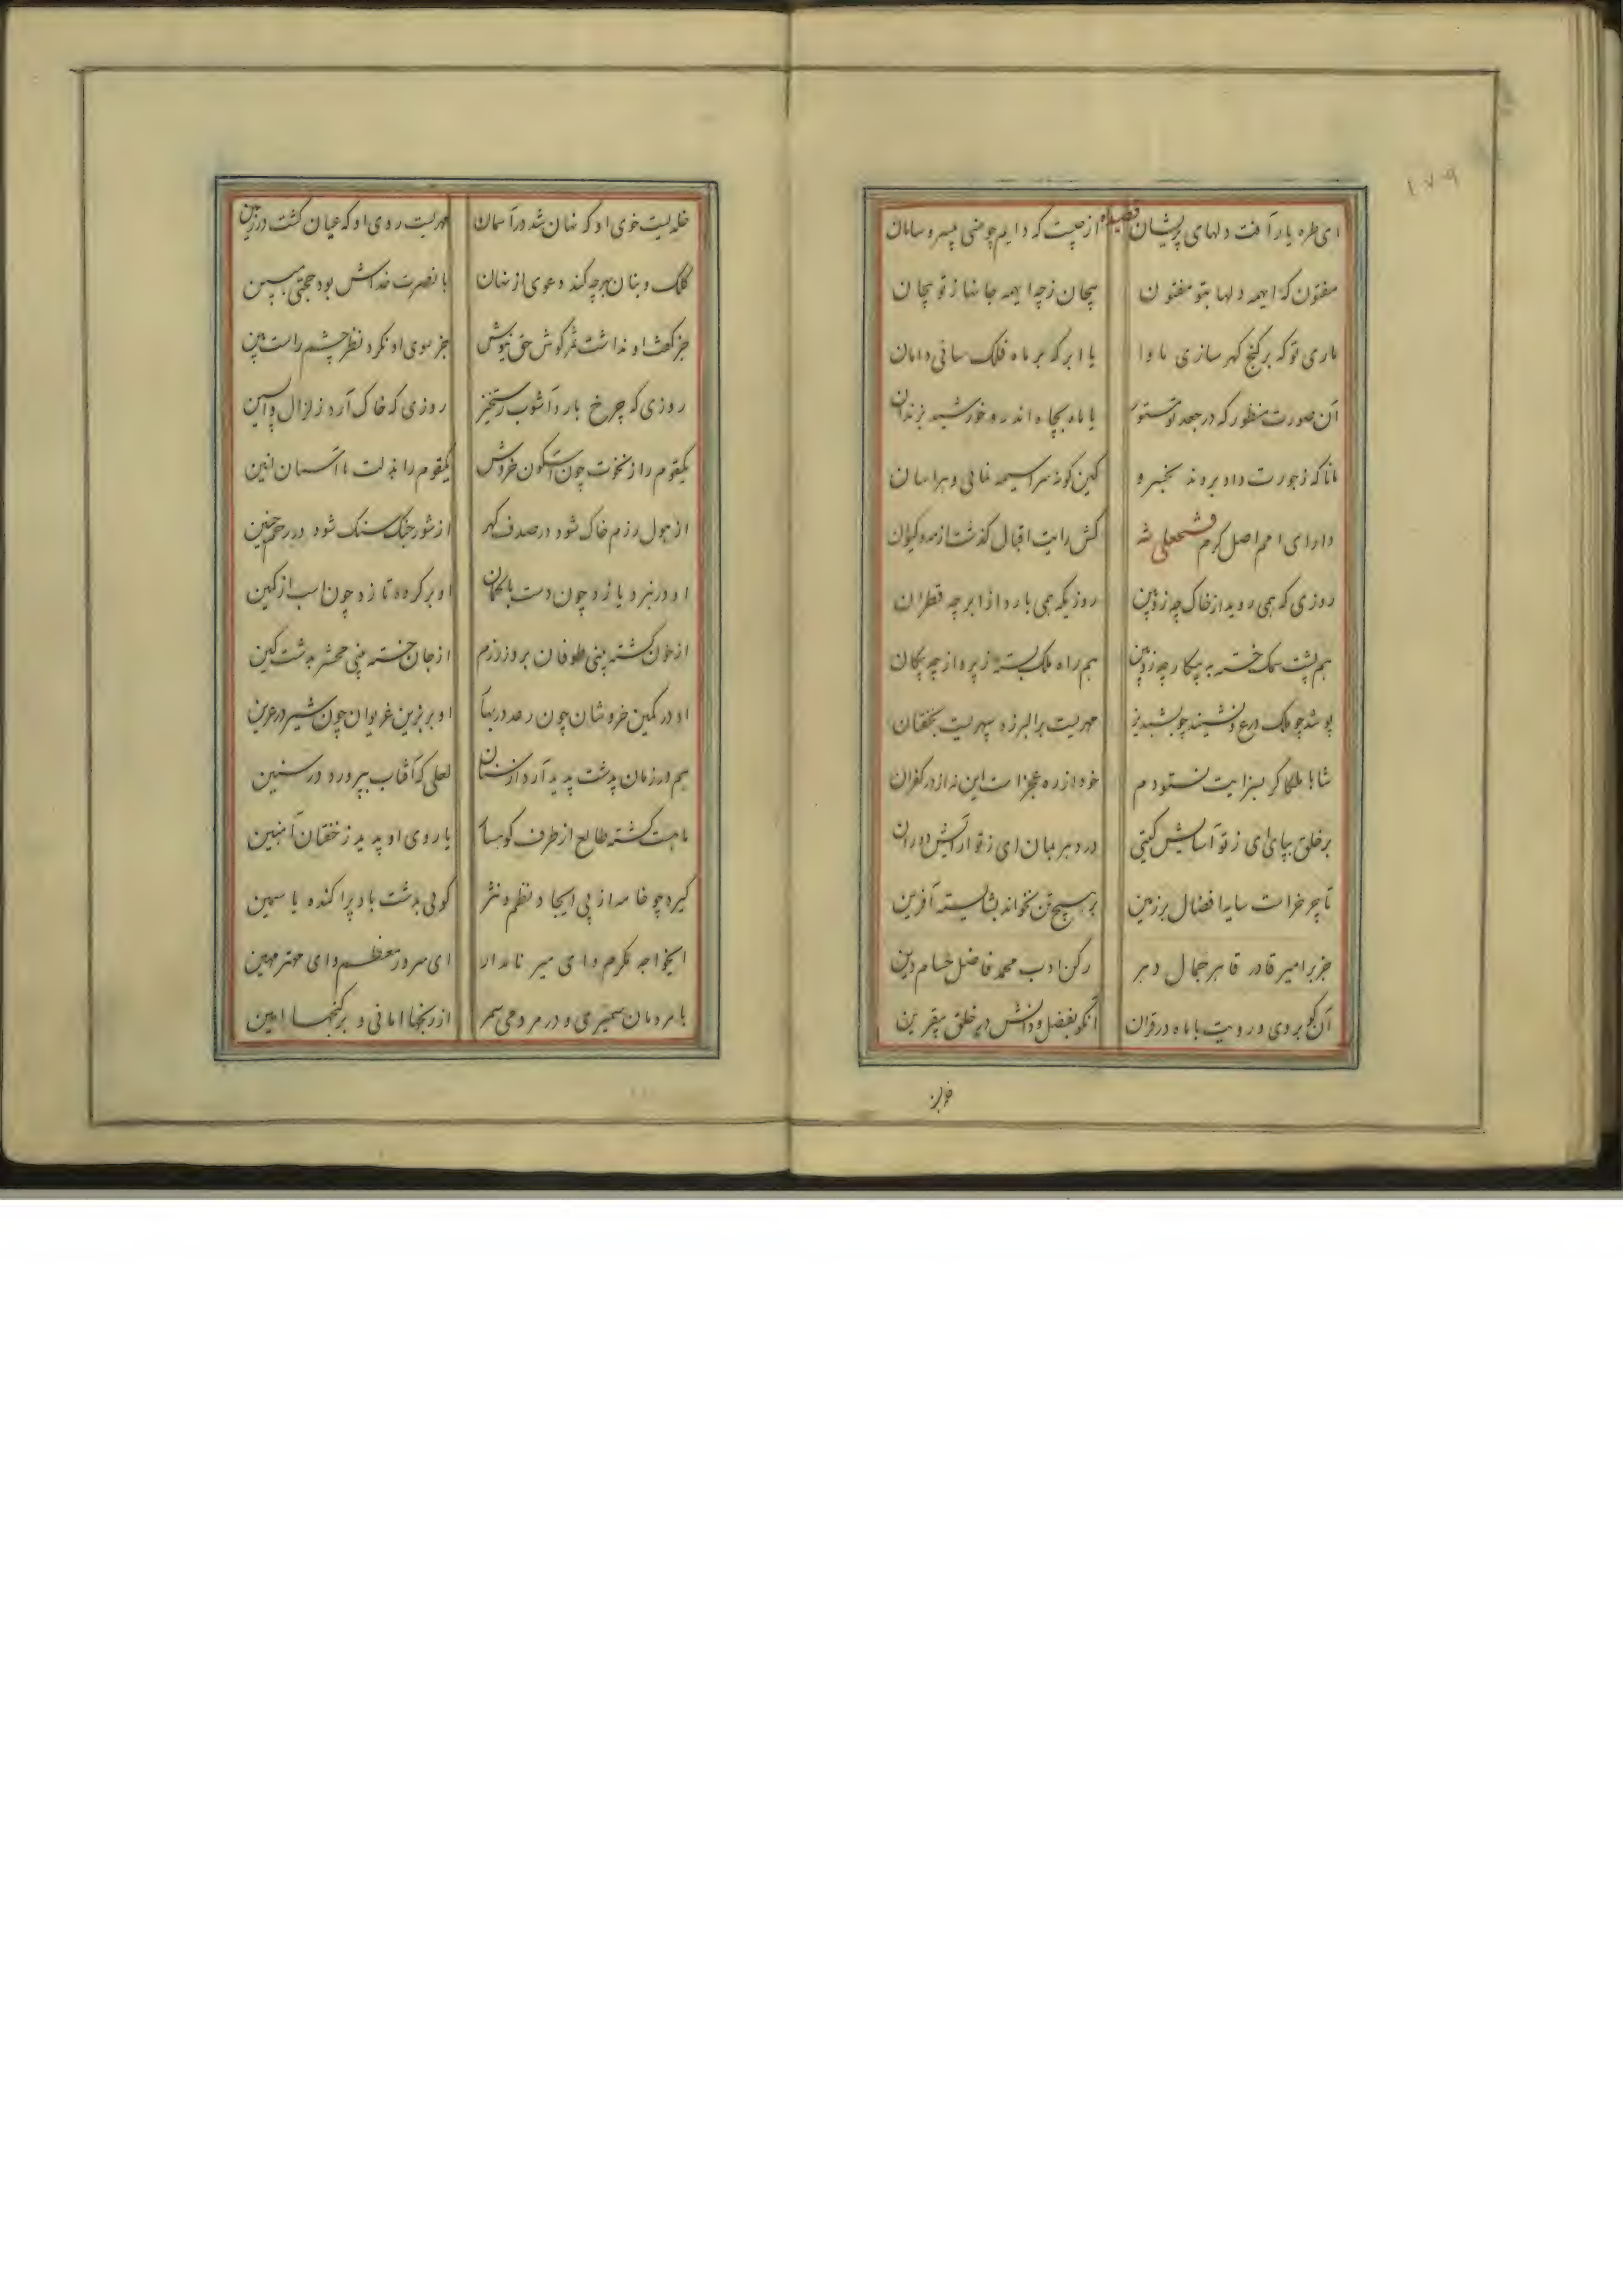 قصیده
ای طره یار آفت دلهای پریشان از چیست که دایم چو منی بیسر و سامان
مفتون که اینهمه دلها بتو مفتون پیچان زچه اینهمه جانها ز تو پیچان
ماری تو که بر گنج گهر سازی ماوا یا ابر که بر ماه فلک سائی دامان
آن صورت منظور که در جعد تو مستور یا ماه بچاه اندر و خورشید بزندان
مانا که ز جورت داد بردند بخسرو کین گونه سراسیمه نمائی و هراسان
دارای امم اصل کرم فتحعلی شه کش رایت اقبال گذشت از مه و کیوان
روزی که همی روید از خاک چه زوبین روزیکه همی بارد از ابر چه قطران
هم پشت سمک خسته به پیکار چه زوبین هم راه ملک بسته ز پرواز چه پیکان
پوشد چو ملک درع و نشیند چو بشبدیز مهریست بر البرز و سپهریست بخفتان
شاها ملکا گر بسزایت نستودم خود از ره عجز است این نه از در کفران
بر خلق بپای ای ز تو آسایش گیتی در دهر بمان ای ز تو آرایش دوران
تا چرخ راست سایه افضال بر زمین بر هیچ تن نخواند بشایسته آفرین
جز بر امیر قادر قاهر جمال دهر رکن ادب محمد فاضل حسام دین
آن کو بروی و رویت با ماه در قران آنکو بفضل و دانش در خلق بیقرین
خلدیست خوی او که نهان شد در آسمان مهریست روی او که عیان گشت در زمین
کلک و بنان هر چه کند دعوی از نهان با نصرت خداش بود حجتی مبین
جز گفت او نداشت مگر گوش حق نیوش جز سوی او نکرد نظر چشم راست بین
روزی که چرخ بارد آشوب رستخیز روزی که خاک آرد زلزال واپسین
یکقوم را ز نخوت چون آسکون خروش یکقوم را بذلت تا آسمان انین
از هول رزم خاک شود در صدف گهر از شور جنگ سنگ شود در رحم جنین
او در نبرد یازد چون دست با کمان او بر گروه تازد چون اسب از کمین
از خون کشته بینی طوفان بروز رزم از جان خسته بینی محشر بدشت کین
او در کمین خروشان چون رعد در بهار او بر بزین غریوان چون شیر در عرین
هم در زمان بدشت پدید آرد از سنان لعلی که آفتاب بپرورد در سنین
ماهیست گشته طالع از طرف کوهسار یا روی او پدید ز خفتان آهنین
گیرد چو خامه از پی ایجاد نظم و نثر گوئی بدشت باد پراکنده یاسمین
ایخواجه مکرم و ای میر نامدار ای سرور معظم و ای مهتر مهین
با مردمان سمیری و در مردمی سمر از رنجها امانی و بر گنجها امین